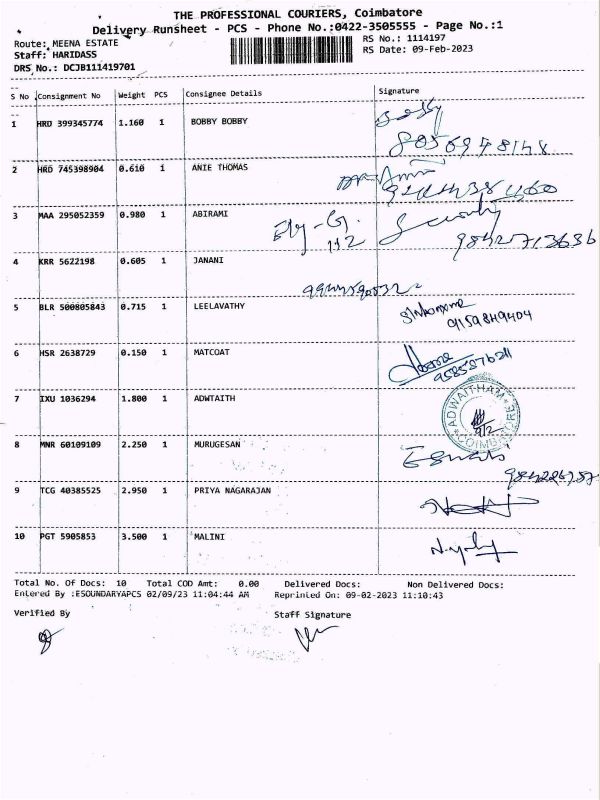 THE PROFESSIONAL COURIERS, Coimbatore
Delivery Runsheet - PCS - Phone No.:0422-3505555 - Page No.:1
Route: MEENA ESTATE
RS No.: 1114197
Staff: HARIDASS
RS Date: 09-Feb-2023
DRS No.: DCJB111419701
S No Consignment No Weight PCS Consignee Details Signature
1 HRD 399345774 1.160 1 BOBBY BOBBY Bobby
8056948148
2 HRD 745398904 0.610 1 ANIE THOMAS
3 MAA 295052359 0.980 1 ABIRAMI Security
112 9842713636
4 KRR 5622198 0.605 1 JANANI
5 BLR 500805843 0.715 1 LEELAVATHY
9159849404
6 HSR 2638729 0.150 1 MATCOAT
7 IXU 1036294 1.800 1 ADWTAITH ADWAITHAM COIMBATORE
9/2
8 MNR 60109109 2.250 1 MURUGESAN
9 TCG 40385525 2.950 1 PRIYA NAGARAJAN
10 PGT 5905853 3.500 1 MALINI
Total No. Of Docs: 10 Total COD Amt: 0.00 Delivered Docs: Non Delivered Docs:
Entered By :ESOUNDARYAPCS 02/09/23 11:04:44 AM Reprinted On: 09-02-2023 11:10:43
Verified By Staff Signature